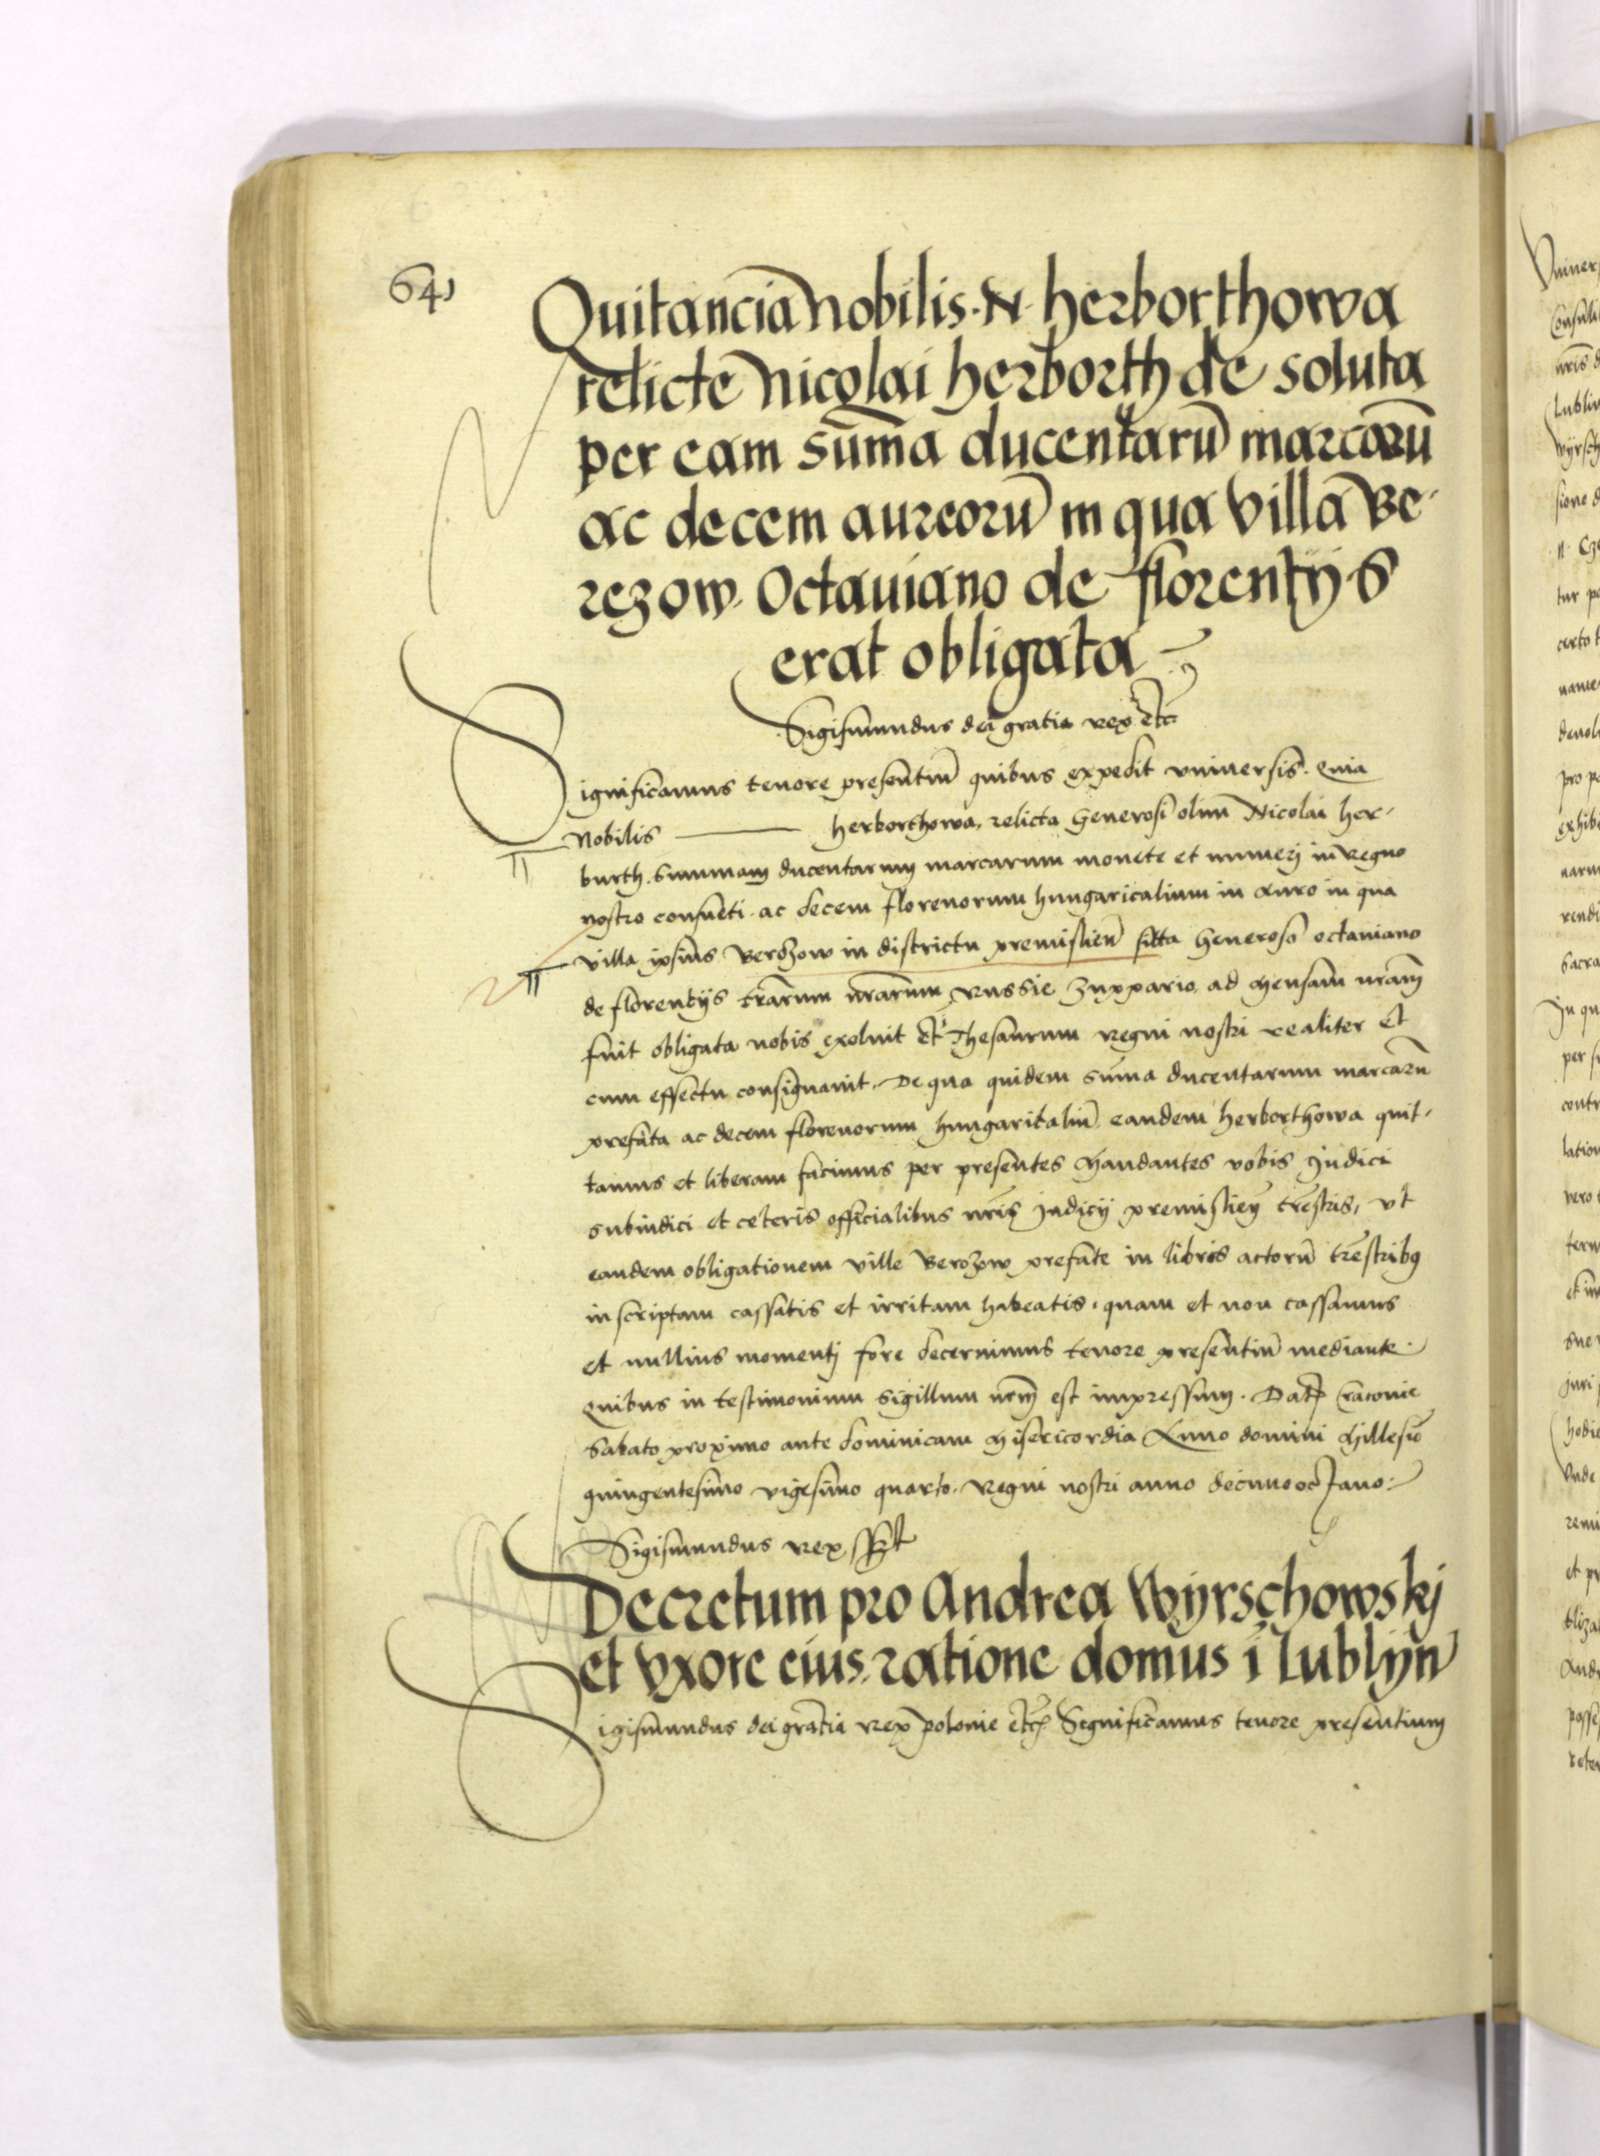 641
Quitancia Nobilis · N · herborthowa
relicte Nicolai herborth de soluta
per eam sūma ducentarū marcarū
ac decem aureorū in qua villa Be-
rezow Octauiano de florentijs
erat obligata
Sigismundus dei gratia rex etc
Significamus tenore presentiū quibus expedit vniuersis. Quia
Nobilis ——— herborthowa, relicta Generosi olim Nicolai her-
burth. Summam ducentarum marcarum monete et numerj in regno
nostro consueti. ac decem florenorum hungaricalium in Auro in qua
villa ipsius Berozow in districtu premislien̄ sita Generoso octauiano
de florentijs t̄rarum n̄rarum Russie zuppario ad mensam n̄ram
fuit obligata nobis exoluit et Thesaurum regni nostri realiter et
cum effectu consignauit. De qua quidem sūma ducentarum marcarū
prefata ac decem florenorum hungaricaliū eandem herborthowa quit-
tamus et liberam facimus per presentes Mandantes vobis Judici
subiudici et ceteris officialibus n̄ris Judicij premislien̄ t̄restris, vt
eandem obligationem ville Berozow prefate in libris actorū t̄restribus
inscriptam cassatis et irritam habeatis. quam et nos cassamus
et nullius momentj fore decernimus tenore presentiū mediante.
Quibus in testimonium sigillum n̄rm est impressum. Datum Cracouie
Sabato proximo ante dominicam Misericordia Anno domini Millesīo
quingentesimo vigesimo quarto. Regni nostri anno decimooctauo.
Sigismundus rex sst
Decretum pro Andrea Wyrschowskj
et vxore eius ratione domus ī Lublyn
Sigismundus dei gratia Rex polonie etc Significamus tenore presentium